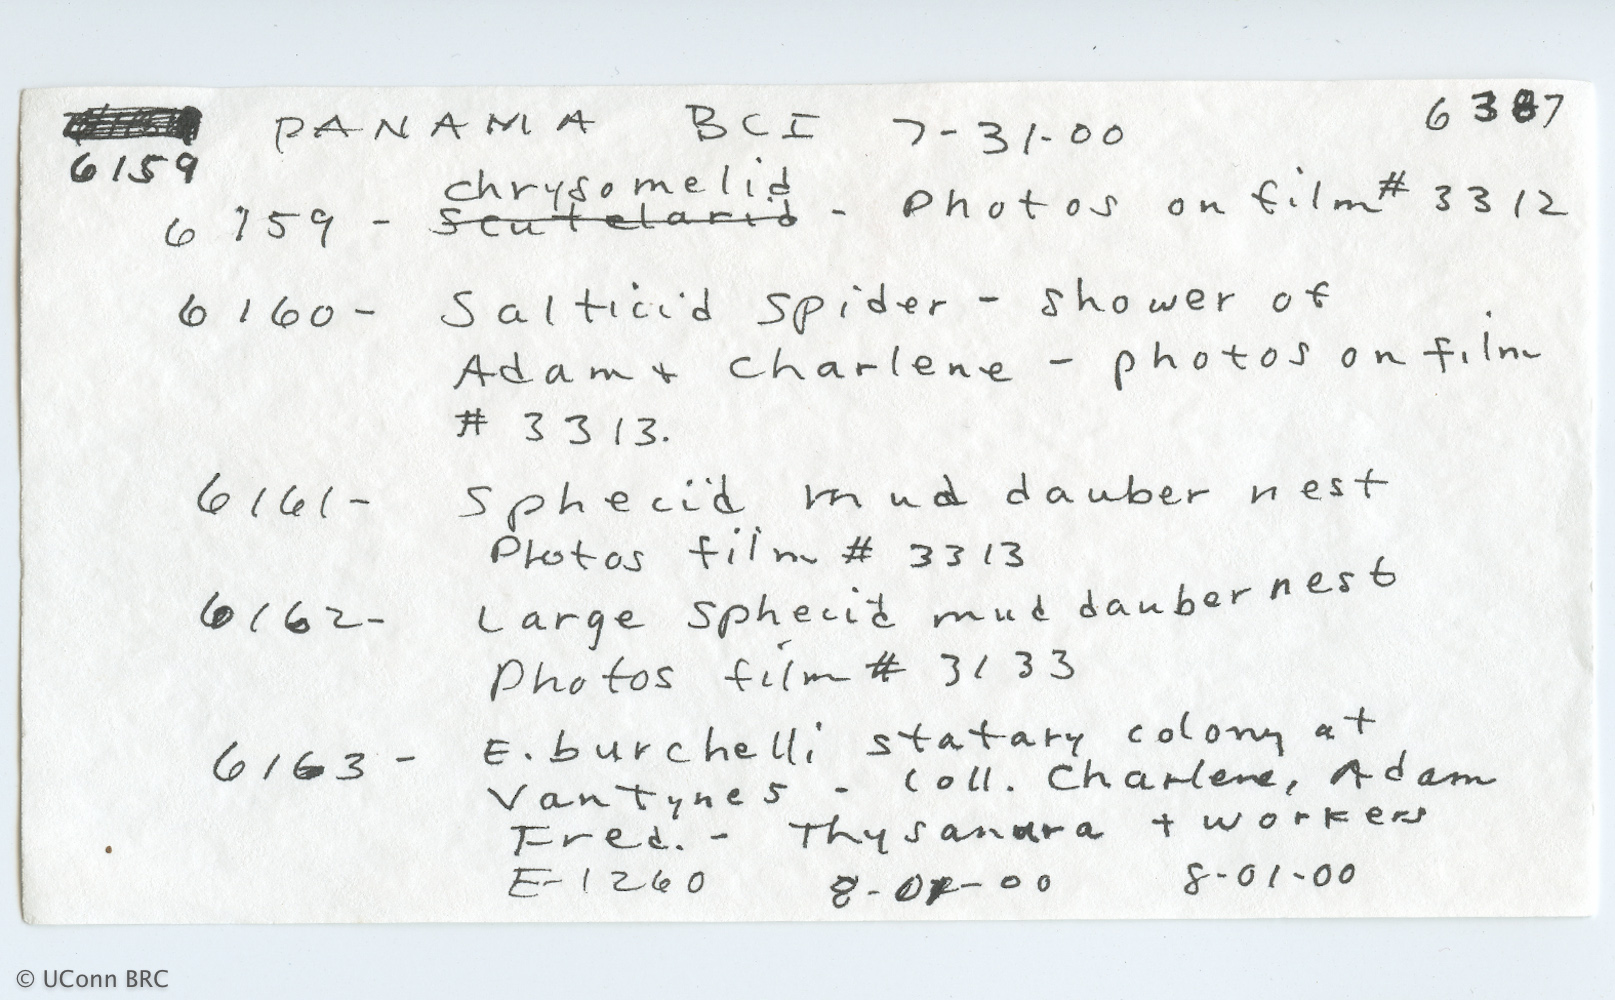 PANAMA BCI 7-31-00 6387
6159
chrysomelid
6159 - Scutelarid - Photos on film # 3312
6160 - Salticid Spider - shower of
Adam + Charlene - photos on film
# 3313.
6161 - Sphecid mud dauber nest
Photos film # 3313
6162 - Large Sphecid mud dauber nest
Photos film # 3133
6163 - E. burchelli statary colony at
Van tynes - Coll. Charlene, Adam
Fred. - Thysanura + workers
E-1260 8-01-00 8-01-00
© UConn BRC